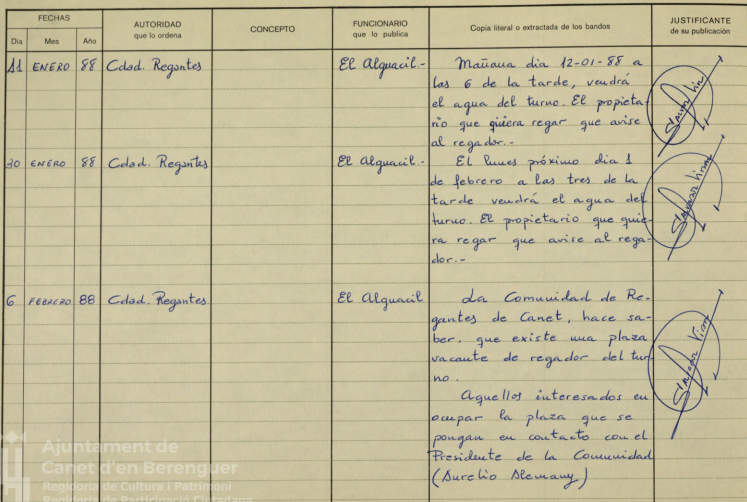 FECHAS
AUTORIDAD
que lo ordena
CONCEPTO
FUNCIONARIO
que lo publica
Copia literal o extractada de los bandos
JUSTIFICANTE
de su publicación
Día
Mes
Año
11 ENERO 88 Cdad. Regantes El Alguacil.- Mañana dia 12-01-88 a
las 6 de la tarde, vendrá
el agua del turno. El propieta-
rio que quiera regar que avise
al regador.-
30 ENERO 88 Cdad. Regantes El Alguacil.- El lunes próximo dia 1
de febrero a las tres de la
tarde vendrá el agua del
turno. El propietario que quie-
ra regar que avise al rega-
dor.-
6 FEBRERO 88 Cdad. Regantes El Alguacil La Comunidad de Re-
gantes de Canet, hace sa-
ber, que existe una plaza
vacante de regador del tur-
no.
Aquellos interesados en
ocupar la plaza que se
pongan en contacto con el
Presidente de la Comunidad
(Aurelio Alemany)
Ajuntament de
Canet d'en Berenguer
Regidoria de Cultura i Patrimoni
Regidoria de Participació Ciutadana